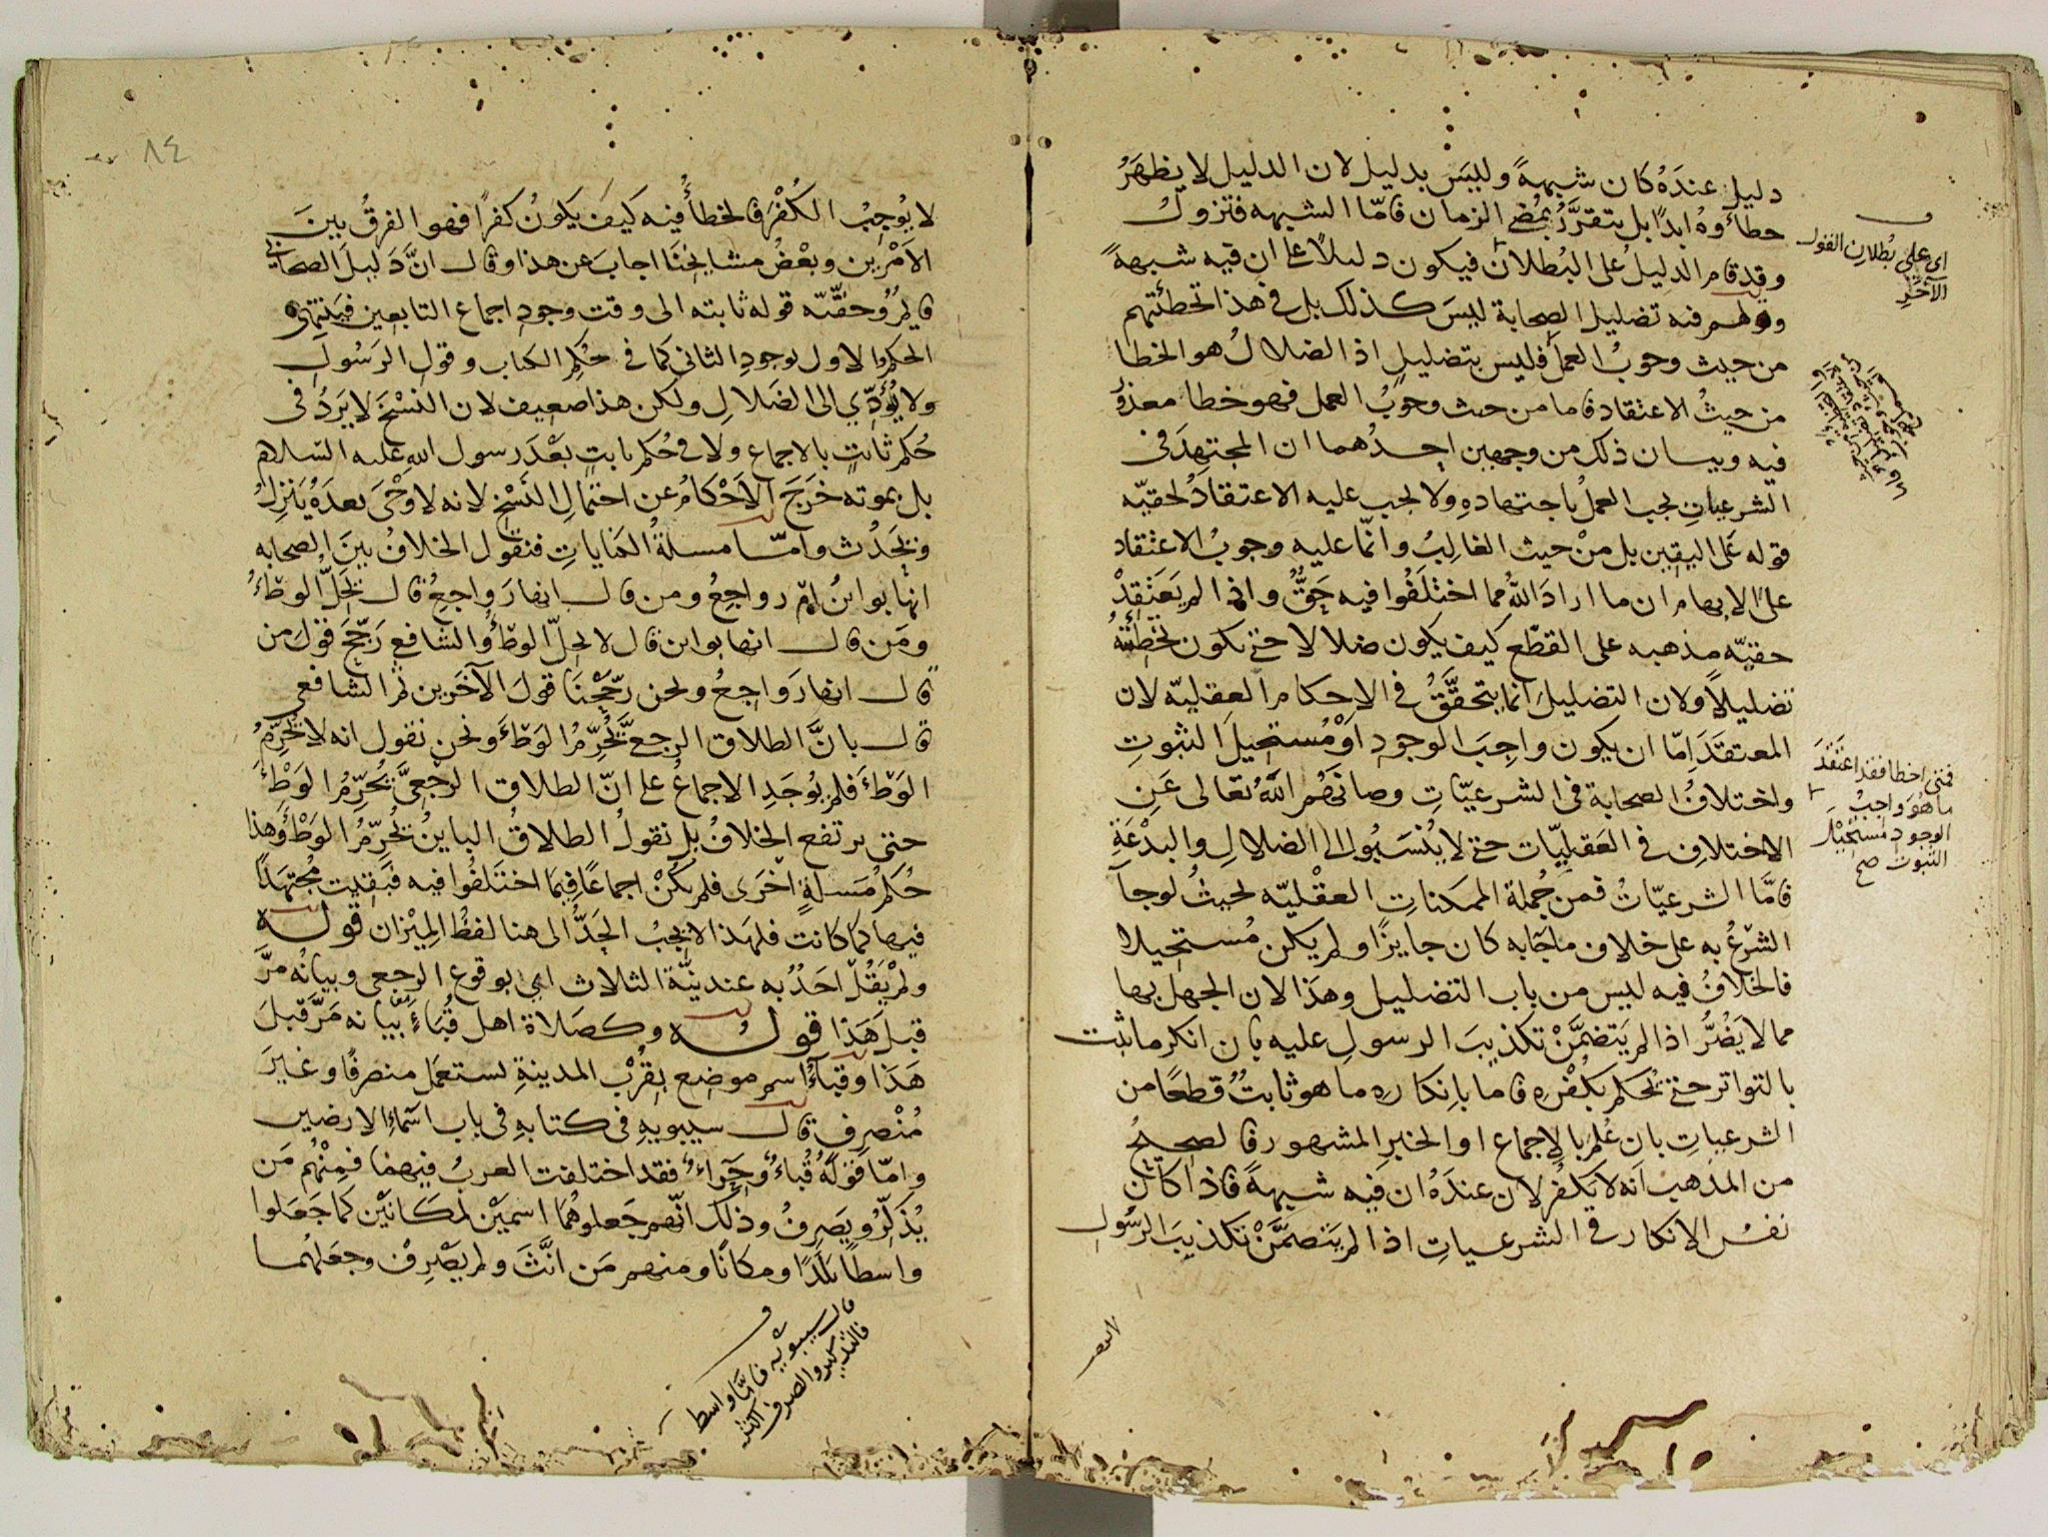 دليلٍ عندَهُ كان شبهةً وليسَ بدليل لان الدليل لا يظهَرُ
خطأوهُ ابدًا بل يتقرَّرُ بمُضي الزمان فامّا الشبهه فتزولُ
وقد قام الدليلُ على البُطلان فيكون دليلًا على ان فيه شبهةً
وقولهم فيه تضليل الصحابة ليسَ كذلك بل في هذا تخطئتهم
من حيث وجوبُ العمل فليس بتضليلٍ اذ الضلالُ هو الخطا
من حيثُ الاعتقاد فاما من حيث وجوبُ العمل فهو خطا معذورٌ
فيه وبيان ذلك من وجهين احدُهما ان المجتهدَ في
الشرعياتِ يجب العملُ باجتهادِهِ ولا يجب عليه الاعتقادُ لحقيّه
قوله على اليقين بل منْ حيث الغالِبُ وانّما عليه وجوبُ الاعتقاد
على الابهام ان ما ارادَ اللهُ مما اختلَفُوا فيه حَقٌّ واذا لم يَعتَقِدْ
حقيّه مذهبه على القطع كيف يكون ضلالا حتى تكون تخطئتُهُ
تضليلًا ولان التضليلَ انما يتحقَّقُ في الاحكام العقليّه لان
المعتقدَ امّا ان يكون واجبَ الوجود اوْ مُستحيلَ الثبوتِ
واختلافُ الصحابة في الشرعيّاتِ وصانَهُم اللهُ تعالى عَنِ
الاختلافِ في العَقليّات حتى لا يُنْسَبُوا الى الضلالِ والبدْعَةِ
فامَّا الشرعيّاتُ فمن جُملة الممكناتِ العقْليّه بحيثُ لو جاء
الشرْعُ به على خلاف ما جآبه كان جايزًا ولم يكن مُستحيلا
فالخلافُ فيه ليس من باب التضليل وهذا لان الجهل بها
مما لا يَضُرُّ اذا لم يَتضمَّنْ تكذيبَ الرسولِ عليه بان انكر ما ثبت
بالتواتر حتى يُحكم بكُفْرِهِ فاما بانكارِهِ ما هو ثابتٌ قطعًا من
الشرعياتِ بان عُلمَ بالاجماع او الخبرِ المشهور فالصحيحُ
من المذهب انه لا يكفُر لان عندَهُ ان فيه شبهةً فاذا كان
نفسُ الانكار في الشرعياتِ اذا لم يَتضمَّنْ تكذيبَ الرسُولِ
اى على بُطلانِ القول
الآخَرِ
فمتى اخطا فقد اعتقدَ
ما هُوَ واجبُ
الوجود مُستحيلَ
الثبوت صح
٨٤
لا يُوجبُ الكُفْرَ فالخطأُ فيه كيفَ يكونُ كفرًا فهو الفرقُ بينَ
الاَمْرين وبعْضُ مشايخنَا اجابَ عن هذا وقال انَّ دَليلَ الصحابي
قايمٌ وحقيّه قوله ثابته الى وقت وجودِ اجماع التابعين فينتهى
الحكم الاول بوجودِ الثانى كما فى حُكم الكتاب وقولِ الرسُولِ
ولا يُؤدّي الى الضلالِ ولكن هذا ضعيف لان النسْخَ لا يَردُ فى
حُكم ثابتٍ بالاجماع ولا فى حُكم ثابتٍ بعْدَ رسول اللهِ عليه السّلام
بل بموته خرَجَ الاَحْكامُ عن احتمالِ النَسْخِ لانه لا وحْىَ بعدَهُ يَنزِلُ
ويَحْدُث وامّا مسلةُ الكناياتِ فنقول الخلافُ بينَ الصحابه
انها بواينُ ام رواجِعُ ومن قال انها رَواجعُ قال بحَلّ الوطءِ
ومَن قال انها بواين قال لا بحلّ الوطءِ والشافعي رَجّحَ قولَ من
قال انها رَواجعُ ونحن رجّحْنَا قولَ الآخَرين ثم الشافعي
قال بانَّ الطلاق الرجعيَّ يُحَرِّمُ الوَطْءَ ونحن نقول انه لا يُحَرِّمُ
الوَطْءَ فلم يُوجَدِ الاجماعُ على انّ الطلاق الرجعيَّ يُحَرِّمُ الوَطْءَ
حتى يرتفع الخلافُ بل نقولُ الطلاقُ الباينُ يُحَرِّمُ الوَطْءَ وهذا
حُكمُ مَسلةٍ اخرى فلم يكنْ اجماعًا فيما اختلفُوا فيه فبقيت مُجتهَدًا
فيها كما كانت فلهذا لا يجبُ الحَدُّ الى هنا لفظُ الميزان قوله
ولمْ يَقُلْ احَدٌ به عند نيّة الثلاث اي بوقوع الرجعي وبيانُه مرَّ
قبلَ هَذا قوله وكصَلاة اهل قُبَاءٍ بيَانه مَرَّ قبلَ
هَذا وقباءُ اسم موضع بقُرْبِ المدينةِ يستعمَل منصرفًا وغيرَ
مُنْصرِفٍ قال سيبويهِ فى كتابهِ فى باب اسْماءِ الارضين
وامّا قولُهُ قُباءُ وحِراءُ فقد اختلفت العربُ فيهما فمِنْهُم مَن
يُذَكِّرُ ويَصرِفُ وذلكَ انّهم جَعلوهُمَا اسمَيْن لمكانَيْن كما جَعَلوا
واسطًا بلَدًا ومكانًا ومنهم مَن انّثَ ولم يَصْرِفْ وجعَلهُمَا
قال سيبويه فامّا واسط
فالتذكير والصرف اكثر